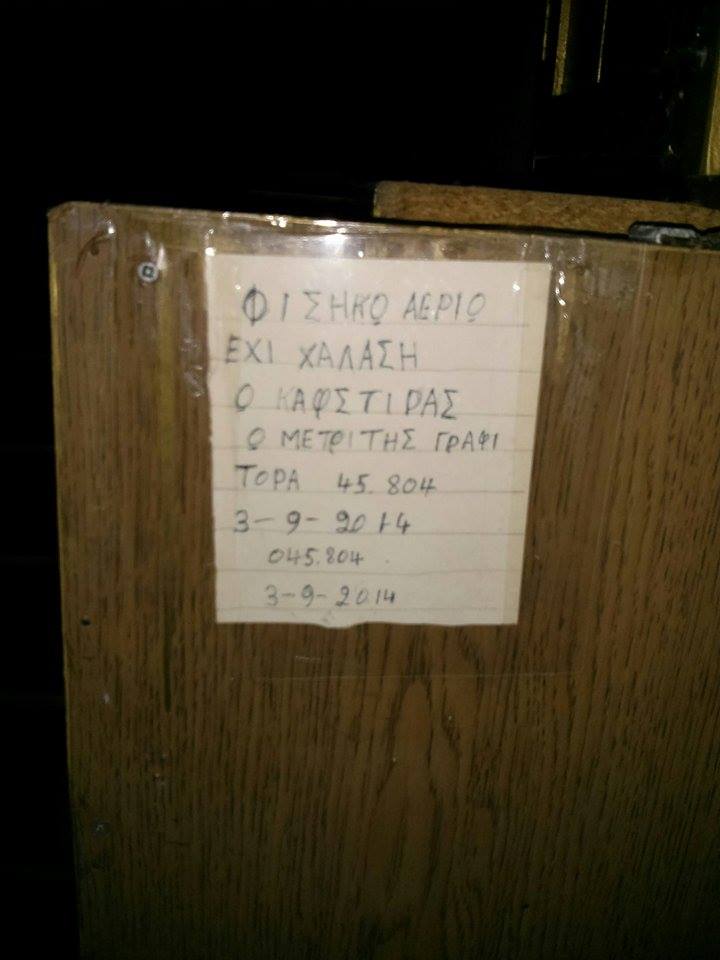 ΦΙΣΗΚΟ ΑΕΡΙΟ
ΕΧΙ ΧΑΛΑΣΗ
Ο ΚΑΦΣΤΙΡΑΣ
Ο ΜΕΤΡΙΤΗΣ ΓΡΑΦΙ
ΤΟΡΑ 45.804
3-9-2014
045.804
3-9-2014